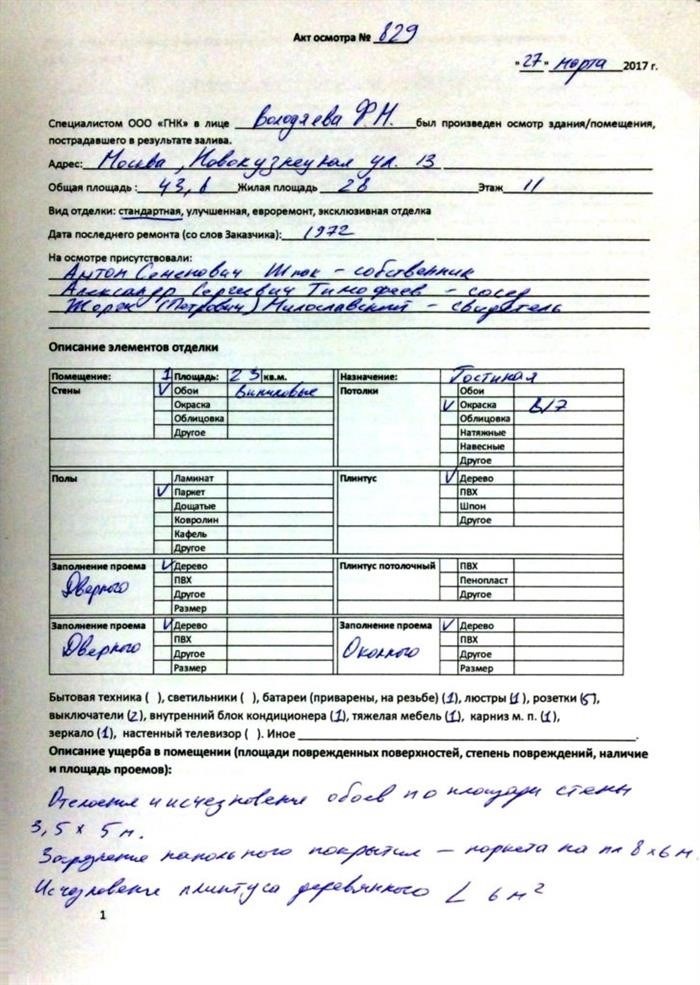 Акт осмотра № 829
"27" марта 2017 г.
Специалистом ООО «ГНК» в лице Володяева Ф.Н. был произведен осмотр здания/помещения,
пострадавшего в результате залива.
Адрес: Москва, Новокузнецкая ул. 13
Общая площадь : 43, Жилая площадь 28 Этаж 11
Вид отделки: стандартная, улучшенная, евроремонт, эксклюзивная отделка
Дата последнего ремонта (со слов Заказчика): 1972
На осмотре присутствовали:
Антон Семенович Шпак – собственник
Александр Сергеевич Тимофеев – сосед
Жорж (Петрович) Милославский – свидетель
Описание элементов отделки
Помещение: 1 Площадь: 23 кв.м. Назначение: Гостиная
Стены V Обои Виниловые Потолки Обои
Окраска V Окраска В/Э
Облицовка Облицовка
Другое Натяжные
Навесные
Другое
Полы Ламинат Плинтус V Дерево
V Паркет ПВХ
Дощатые Шпон
Ковролин Другое
Кафель
Другое
Заполнение проема V Дерево Плинтус потолочный ПВХ
Дверного ПВХ Пенопласт
Другое Другое
Размер
Заполнение проема V Дерево Заполнение проема V Дерево
Дверного ПВХ Оконного ПВХ
Другое Другое
Размер Размер
Бытовая техника ( ), светильники ( ), батареи (приварены, на резьбе) (1), люстры (1), розетки (5),
выключатели (2), внутренний блок кондиционера (1), тяжелая мебель (1), карниз м. п. (1),
зеркало (1), настенный телевизор ( ). Иное
Описание ущерба в помещении (площади поврежденных поверхностей, степень повреждений, наличие
и площадь проемов):
Отслоение и исчезновение обоев по площади стены
3,5 х 5 м.
напольного покрытия – паркета на пл 8х6 м.
Исчезновение плинтуса деревянного L 6 м2
1